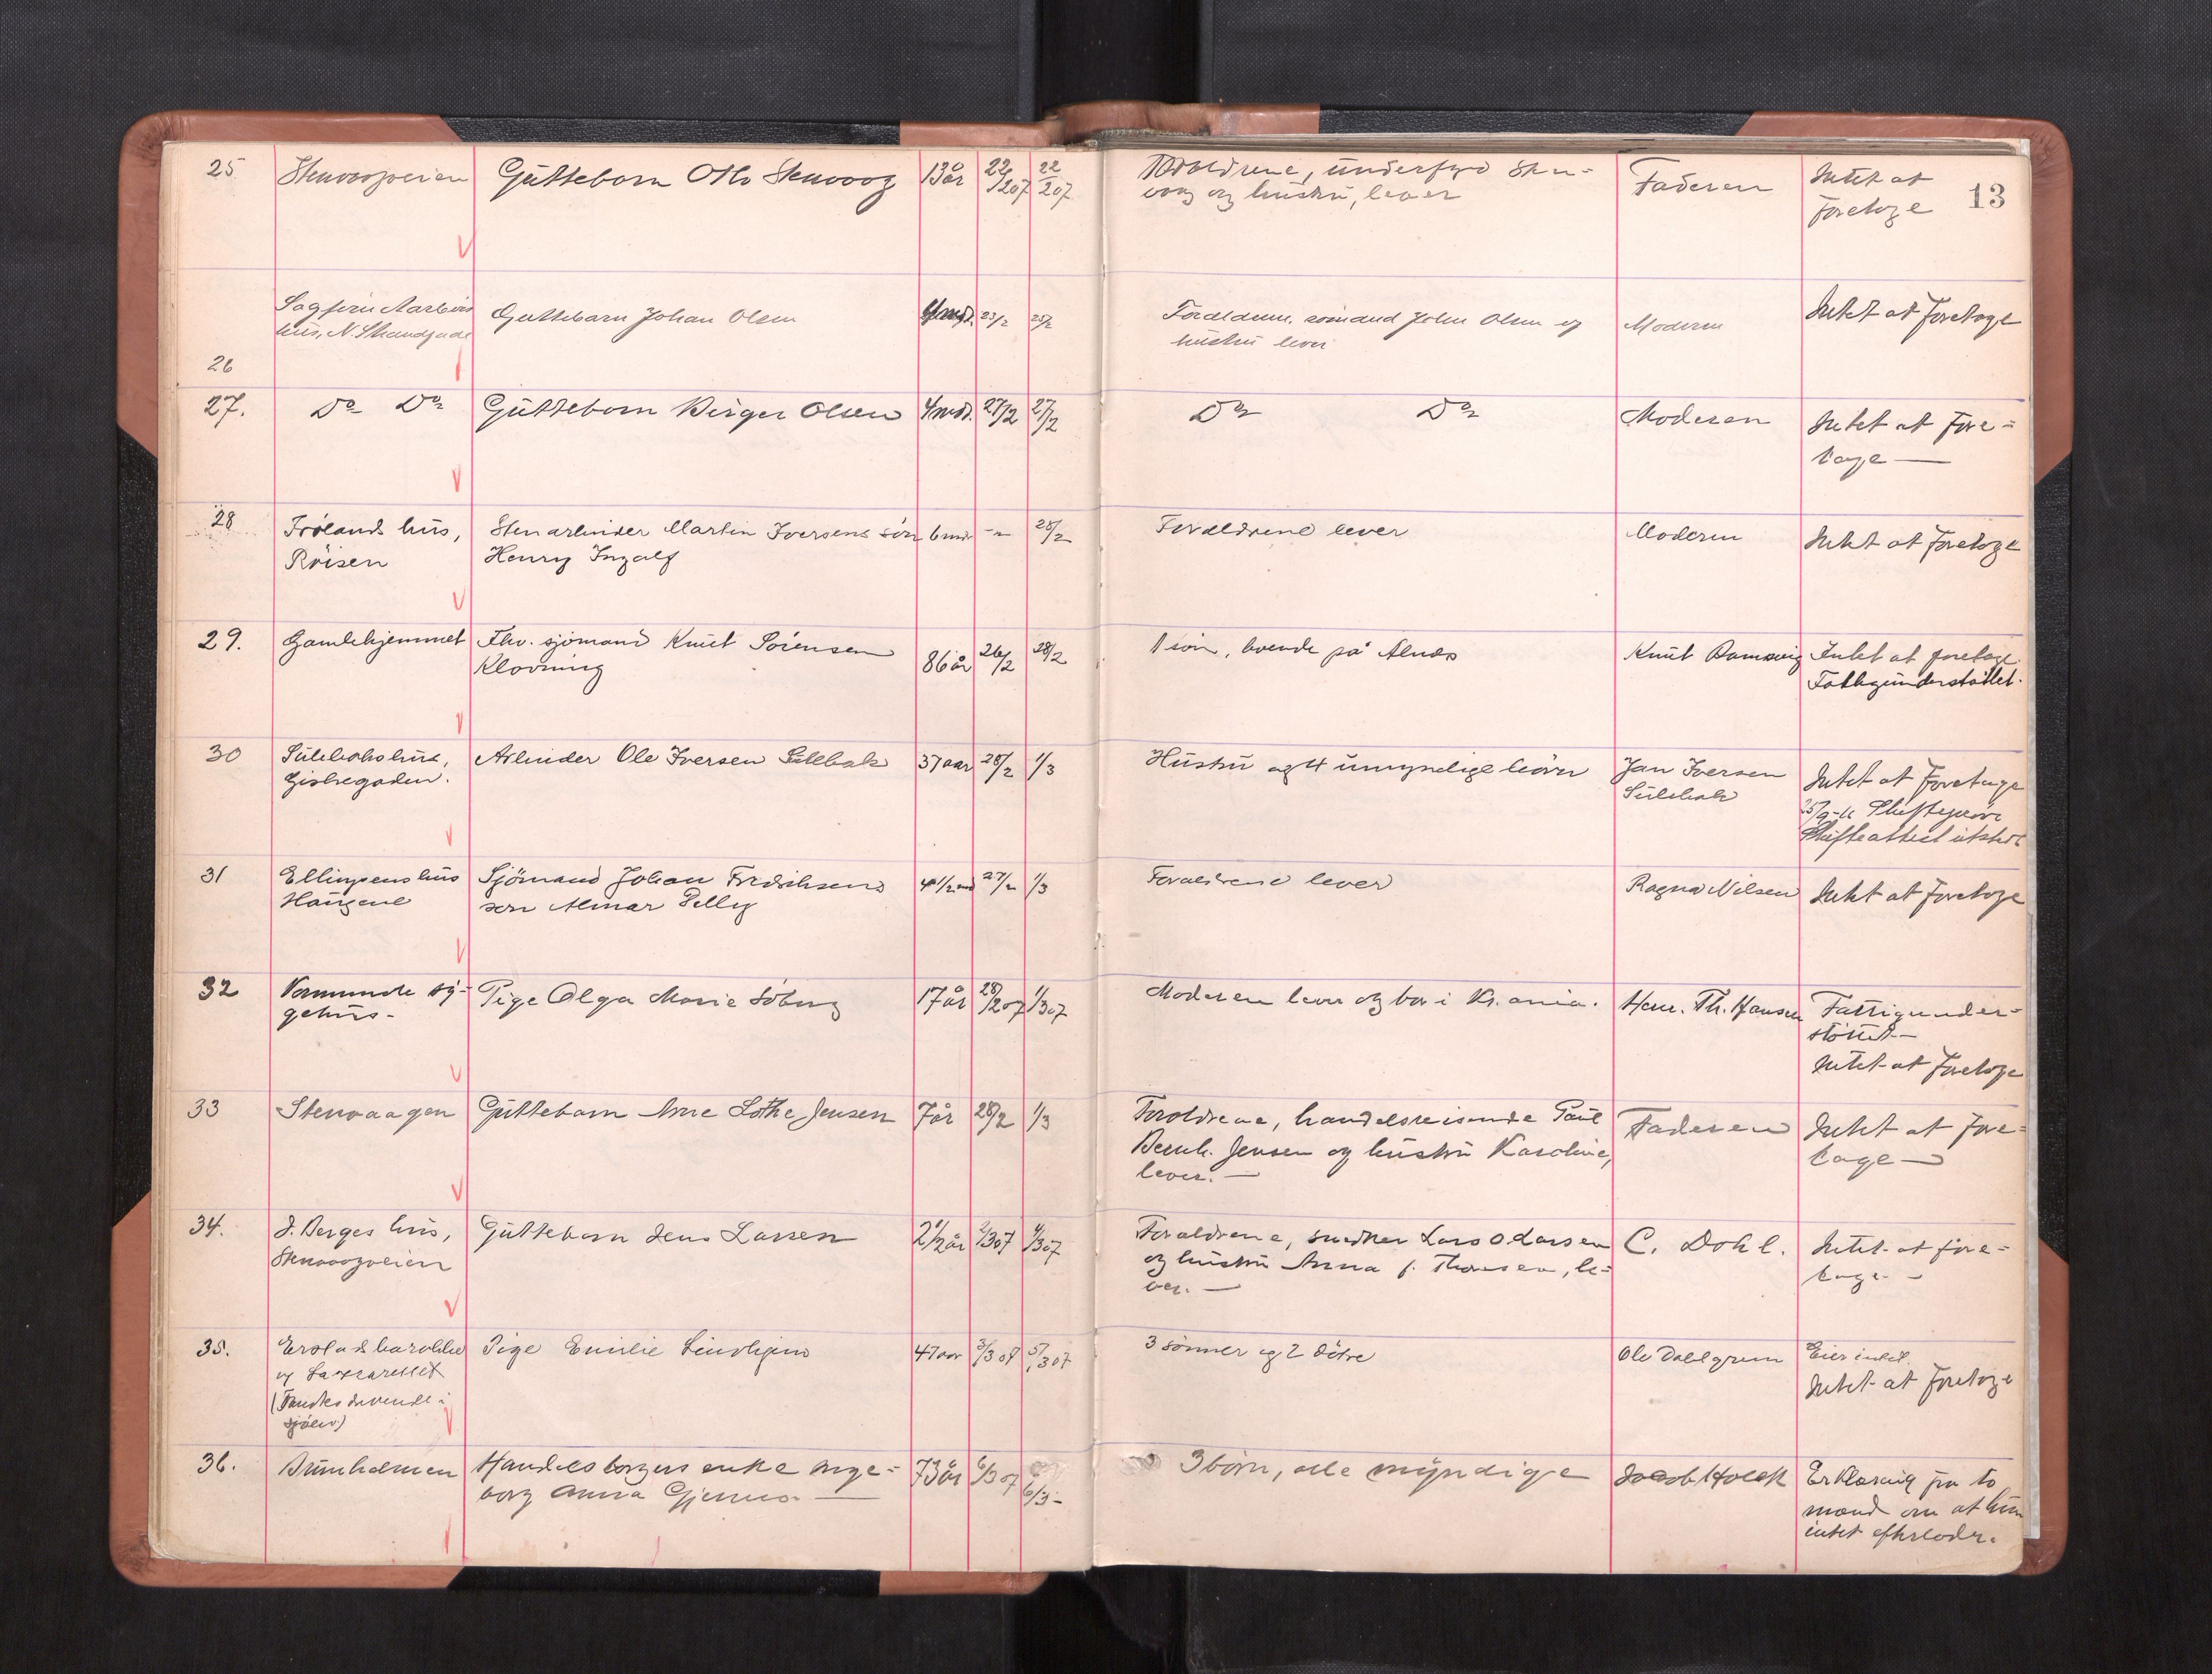 13
25 Stenvogveien Gutteborn Otto Stenvoog 13 år 22/2 07 22/2 07 Forældrene, underfogd Sten-
voog og hustru, lever Faderen Intet at
foretage
26 Sagförer Aarflots
hus, N. Strandgade Guttebarn Johan Olsen 4 mdr. 23/2 25/2 Forældrene, sömand John Olsen og
hustru lever Moderen Intet at foretage
27. Do Do Gutteborn Birger Olsen 4 mdr. 27/2 27/2 Do Do Moderen Intet at fore-
tage —
28 Fröland hus,
Röisen Stenarbeider Martin Iversens sön
Henry Ingolf 6 mdr - " 28/2 Forældrene lever Moderen Intet at foretage
29. Gamlehjemmet Fhv. sjömand Knut Sörensen
Klovning 86 år 26/2 28/2 1 sön, boende på Alnæs Knut Ramsvig Intet at foretage.
Fattigunderstöttet.
30 Sulebakshus,
Giskegaden. Arbeider Ole Iversen Sulebak 37 aar 28/2 1/3 Hustru og 4 umyndige börn Jan Iversen
Sulebak Intet at foretage
25/9-11 Skiftepröve
Skifteattest utstedt
31 Ellingsens hus
Haugene Sjömand Johan Fredriksens
sön Almar Pelly 4 1/2 md 27/2 1/3 Forældrene lever Ragna Nilsen Intet at foretage
32 Kommunale sy-
gehus - Pige Olga Marie Söberg 17 år 28/2 07 1/3 07 Moderen lever og bor i Kr.ania. Henr. Th. Hansen Fattigunder-
stöttet —
Intet at foretage
33 Stenvaagen Gutteborn Arne Lothe Jensen 7 år 28/2 1/3 Forældrene, handelsreisende Paul
Bernh. Jensen og hustru Karoline,
lever. — Faderen Intet at fore-
tage —
34. J. Berges hus,
Stenvoogveien Gutteborn Jens Larsen 2 1/2 år 2/3 07 4/3 07 Forældrene, snedker Lars O Larsen
og hustru Anna f. Thoresen, le-
ver. — C. Dahl. Intet at fore-
tage -
35. og Lazzarettet
(Fandtes drivende i
sjöen) Pige Emilie Lindhjem 47 aar 3/3 07 5/3 07 3 sönner og 2 dötre Ole Dahlgren Eier intet.
Intet at foretage
36. Bunholmen Handelsborgers enke Inge-
borg Anna Gjersæ — 73 år 6/3 07 6/3 - 3 börn, alle myndige Jacob Holck Erklæring fra to
mænd om at hun
intet efterlader.